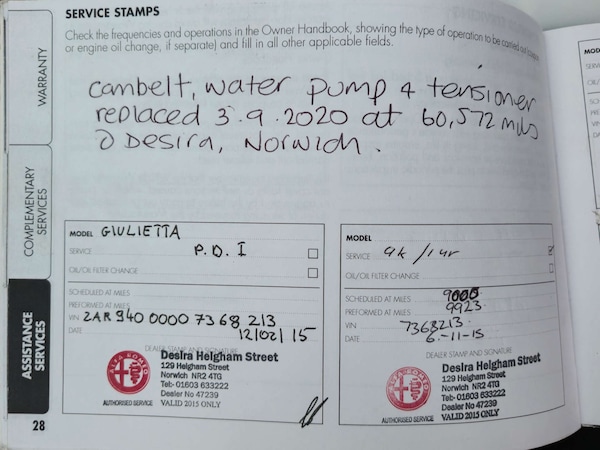 SERVICE STAMPS
Check the frequencies and operations in the Owner Handbook, showing the type of operation to be carried out (service
or engine oil change, if separate) and fill in all other applicable fields.
WARRANTY
COMPLEMENTARY
SERVICES
ASSISTANCE
SERVICES
cambelt, water pump & tensioner
replaced 3.9.2020 at 60,572 miles
@ Desira, Norwich.
MODEL GIULIETTA
SERVICE P.D.I
OIL/OIL FILTER CHANGE
SCHEDULED AT MILES
PREFORMED AT MILES
VIN ZAR940 0000 7368 213
DATE 12/02/15
DEALER STAMP AND SIGNATURE
ALFA ROMEO
AUTHORISED SERVICE
Desira Heigham Street
129 Heigham Street
Norwich NR2 4TG
Tel- 01603 633222
Dealer No 47239
VALID 2015 ONLY
MODEL
SERVICE 9k/1yr
OIL/OIL FILTER CHANGE
SCHEDULED AT MILES 9000
PREFORMED AT MILES 9923
VIN 7368213
DATE 6-11-15
DEALER STAMP AND SIGNATURE
ALFA ROMEO
AUTHORISED SERVICE
Desira Heigham Street
129 Heigham Street
Norwich NR2 4TG
Tel- 01603 633222
Dealer No 47239
VALID 2015 ONLY
28